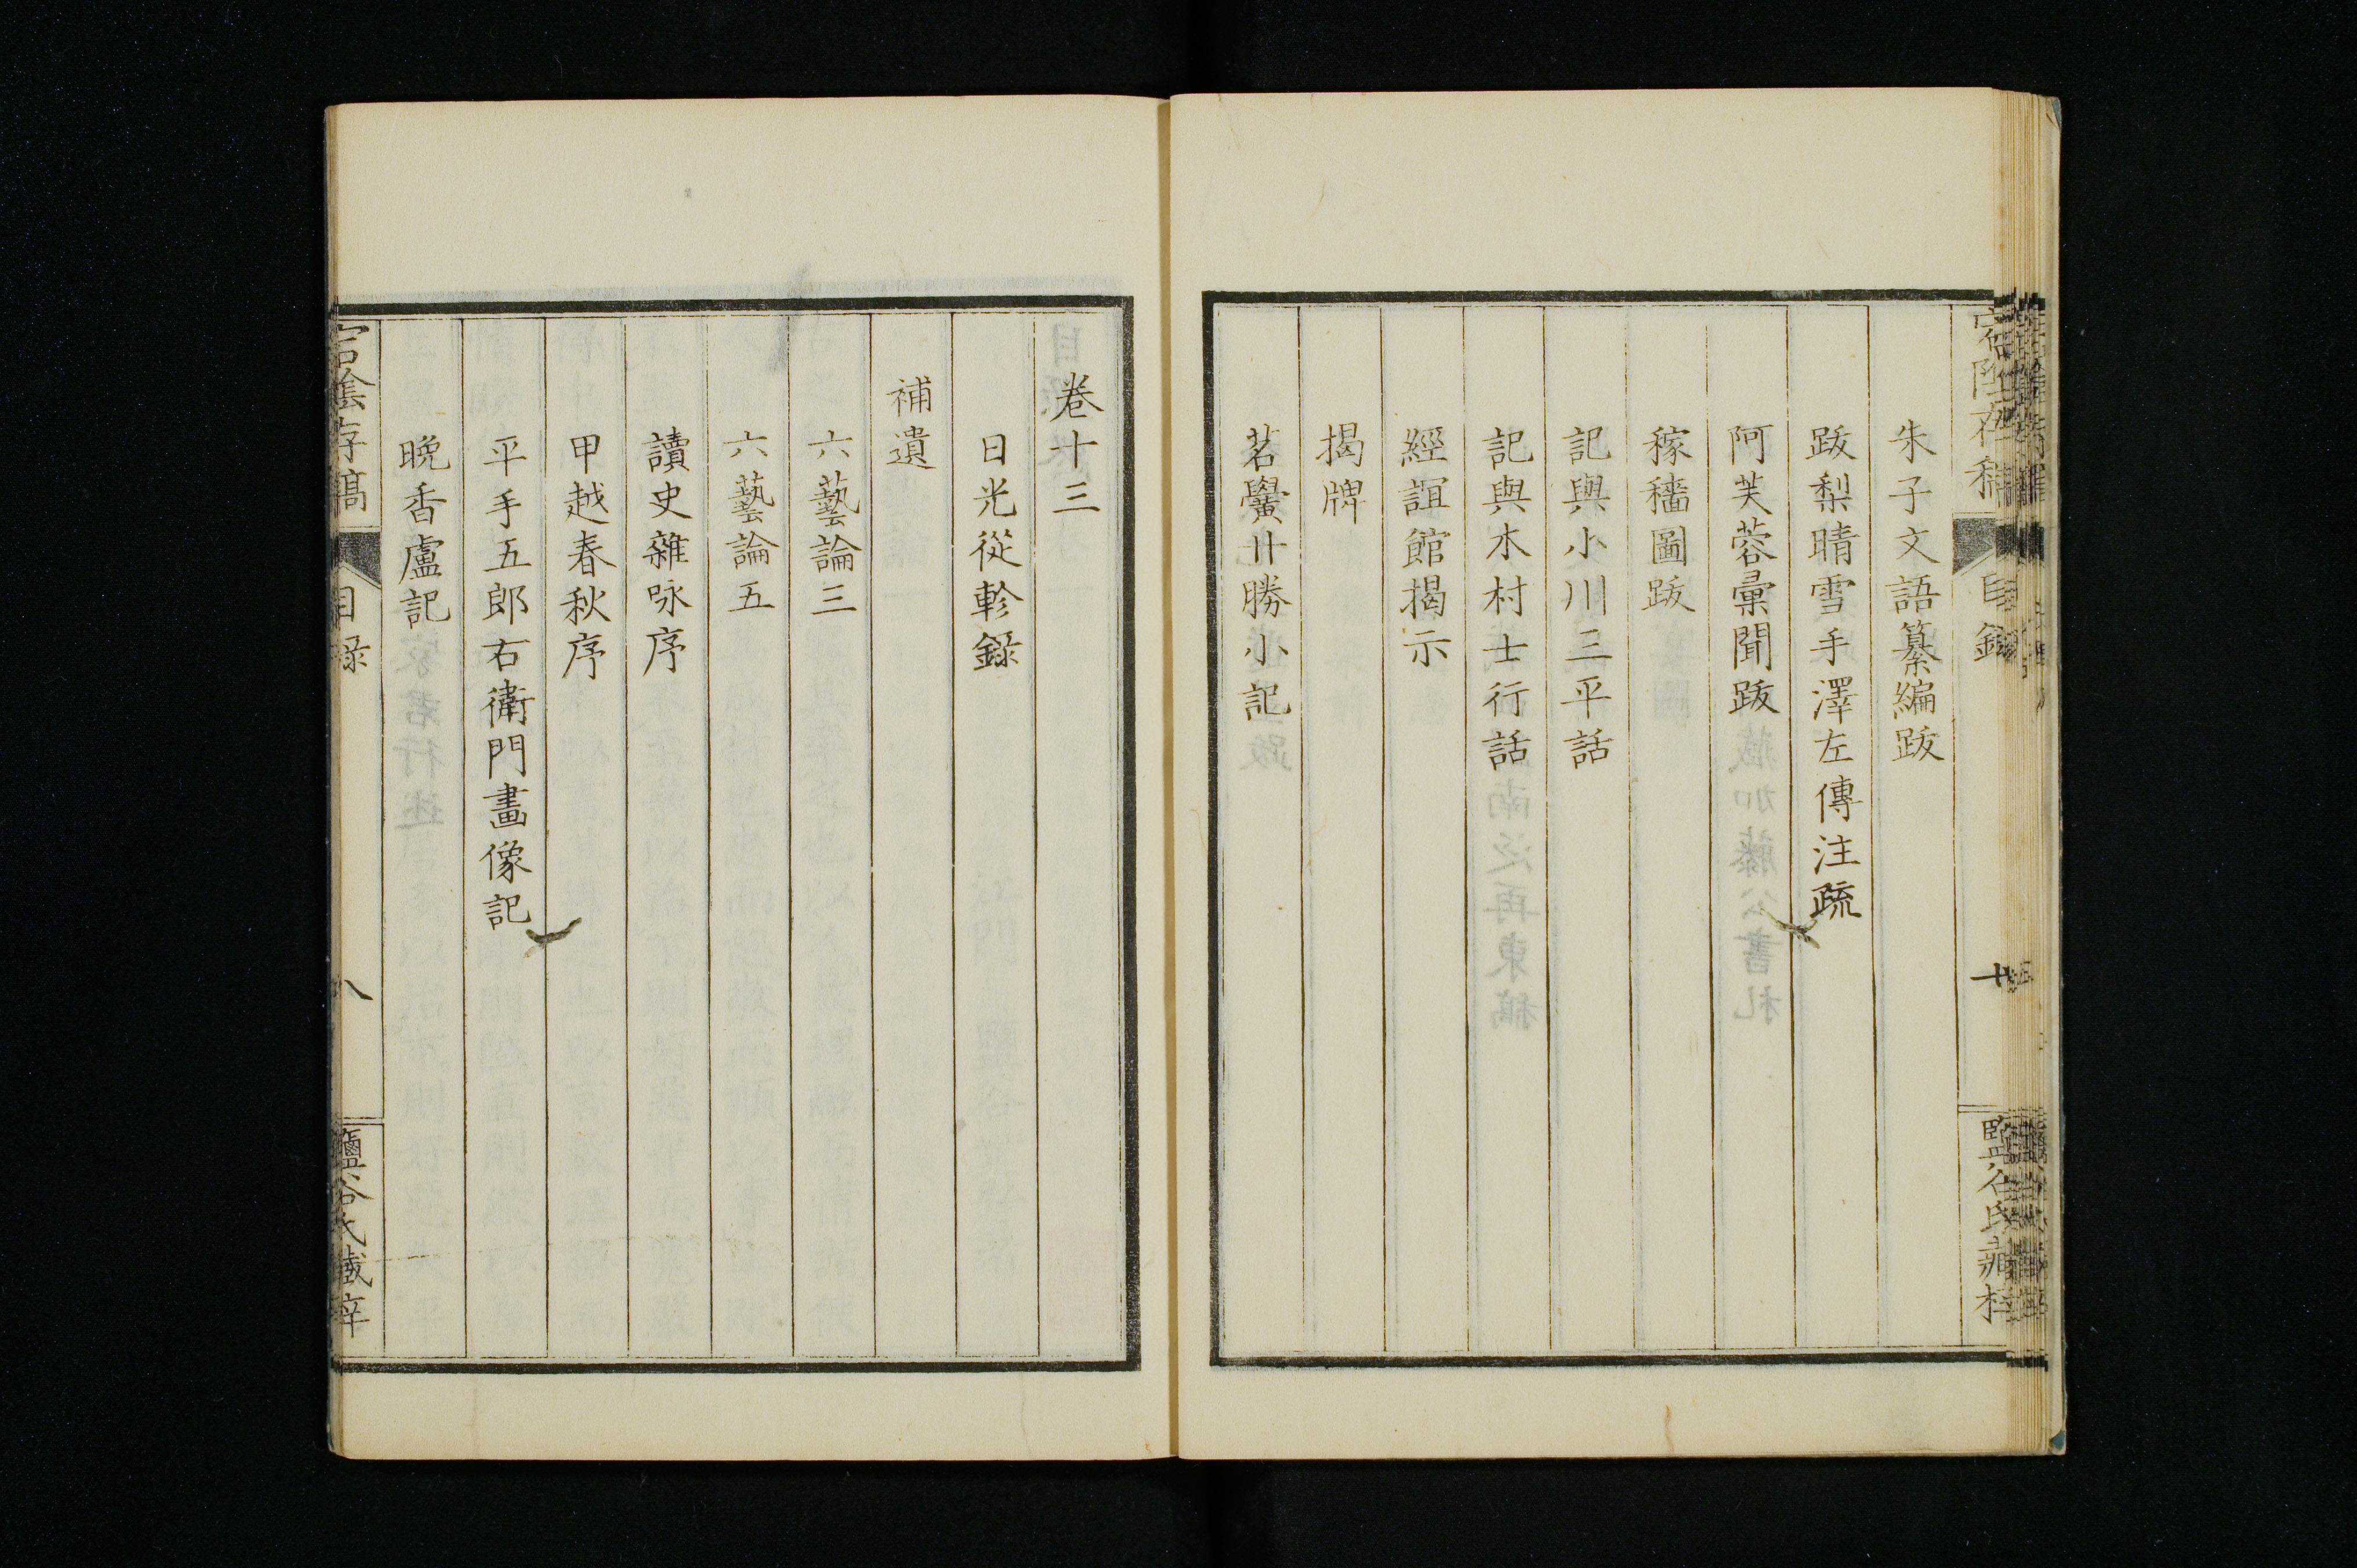 朱子文語纂編跋
跋梨晴雪手澤左傳注疏
阿芙蓉彙聞跋
稼穡圖跋
記與小川三平話
記與木村士行話
經誼館揭示
揭牌
茗黌廿勝小記
卷十三
日光從軫錄
補遺
六藝論三
六藝論五
讀史雜咏序
甲越春秋序
平手五郎右衞門畫像記
晚香廬記
宕陰存稿
目錄
八
鹽谷氏藏梓